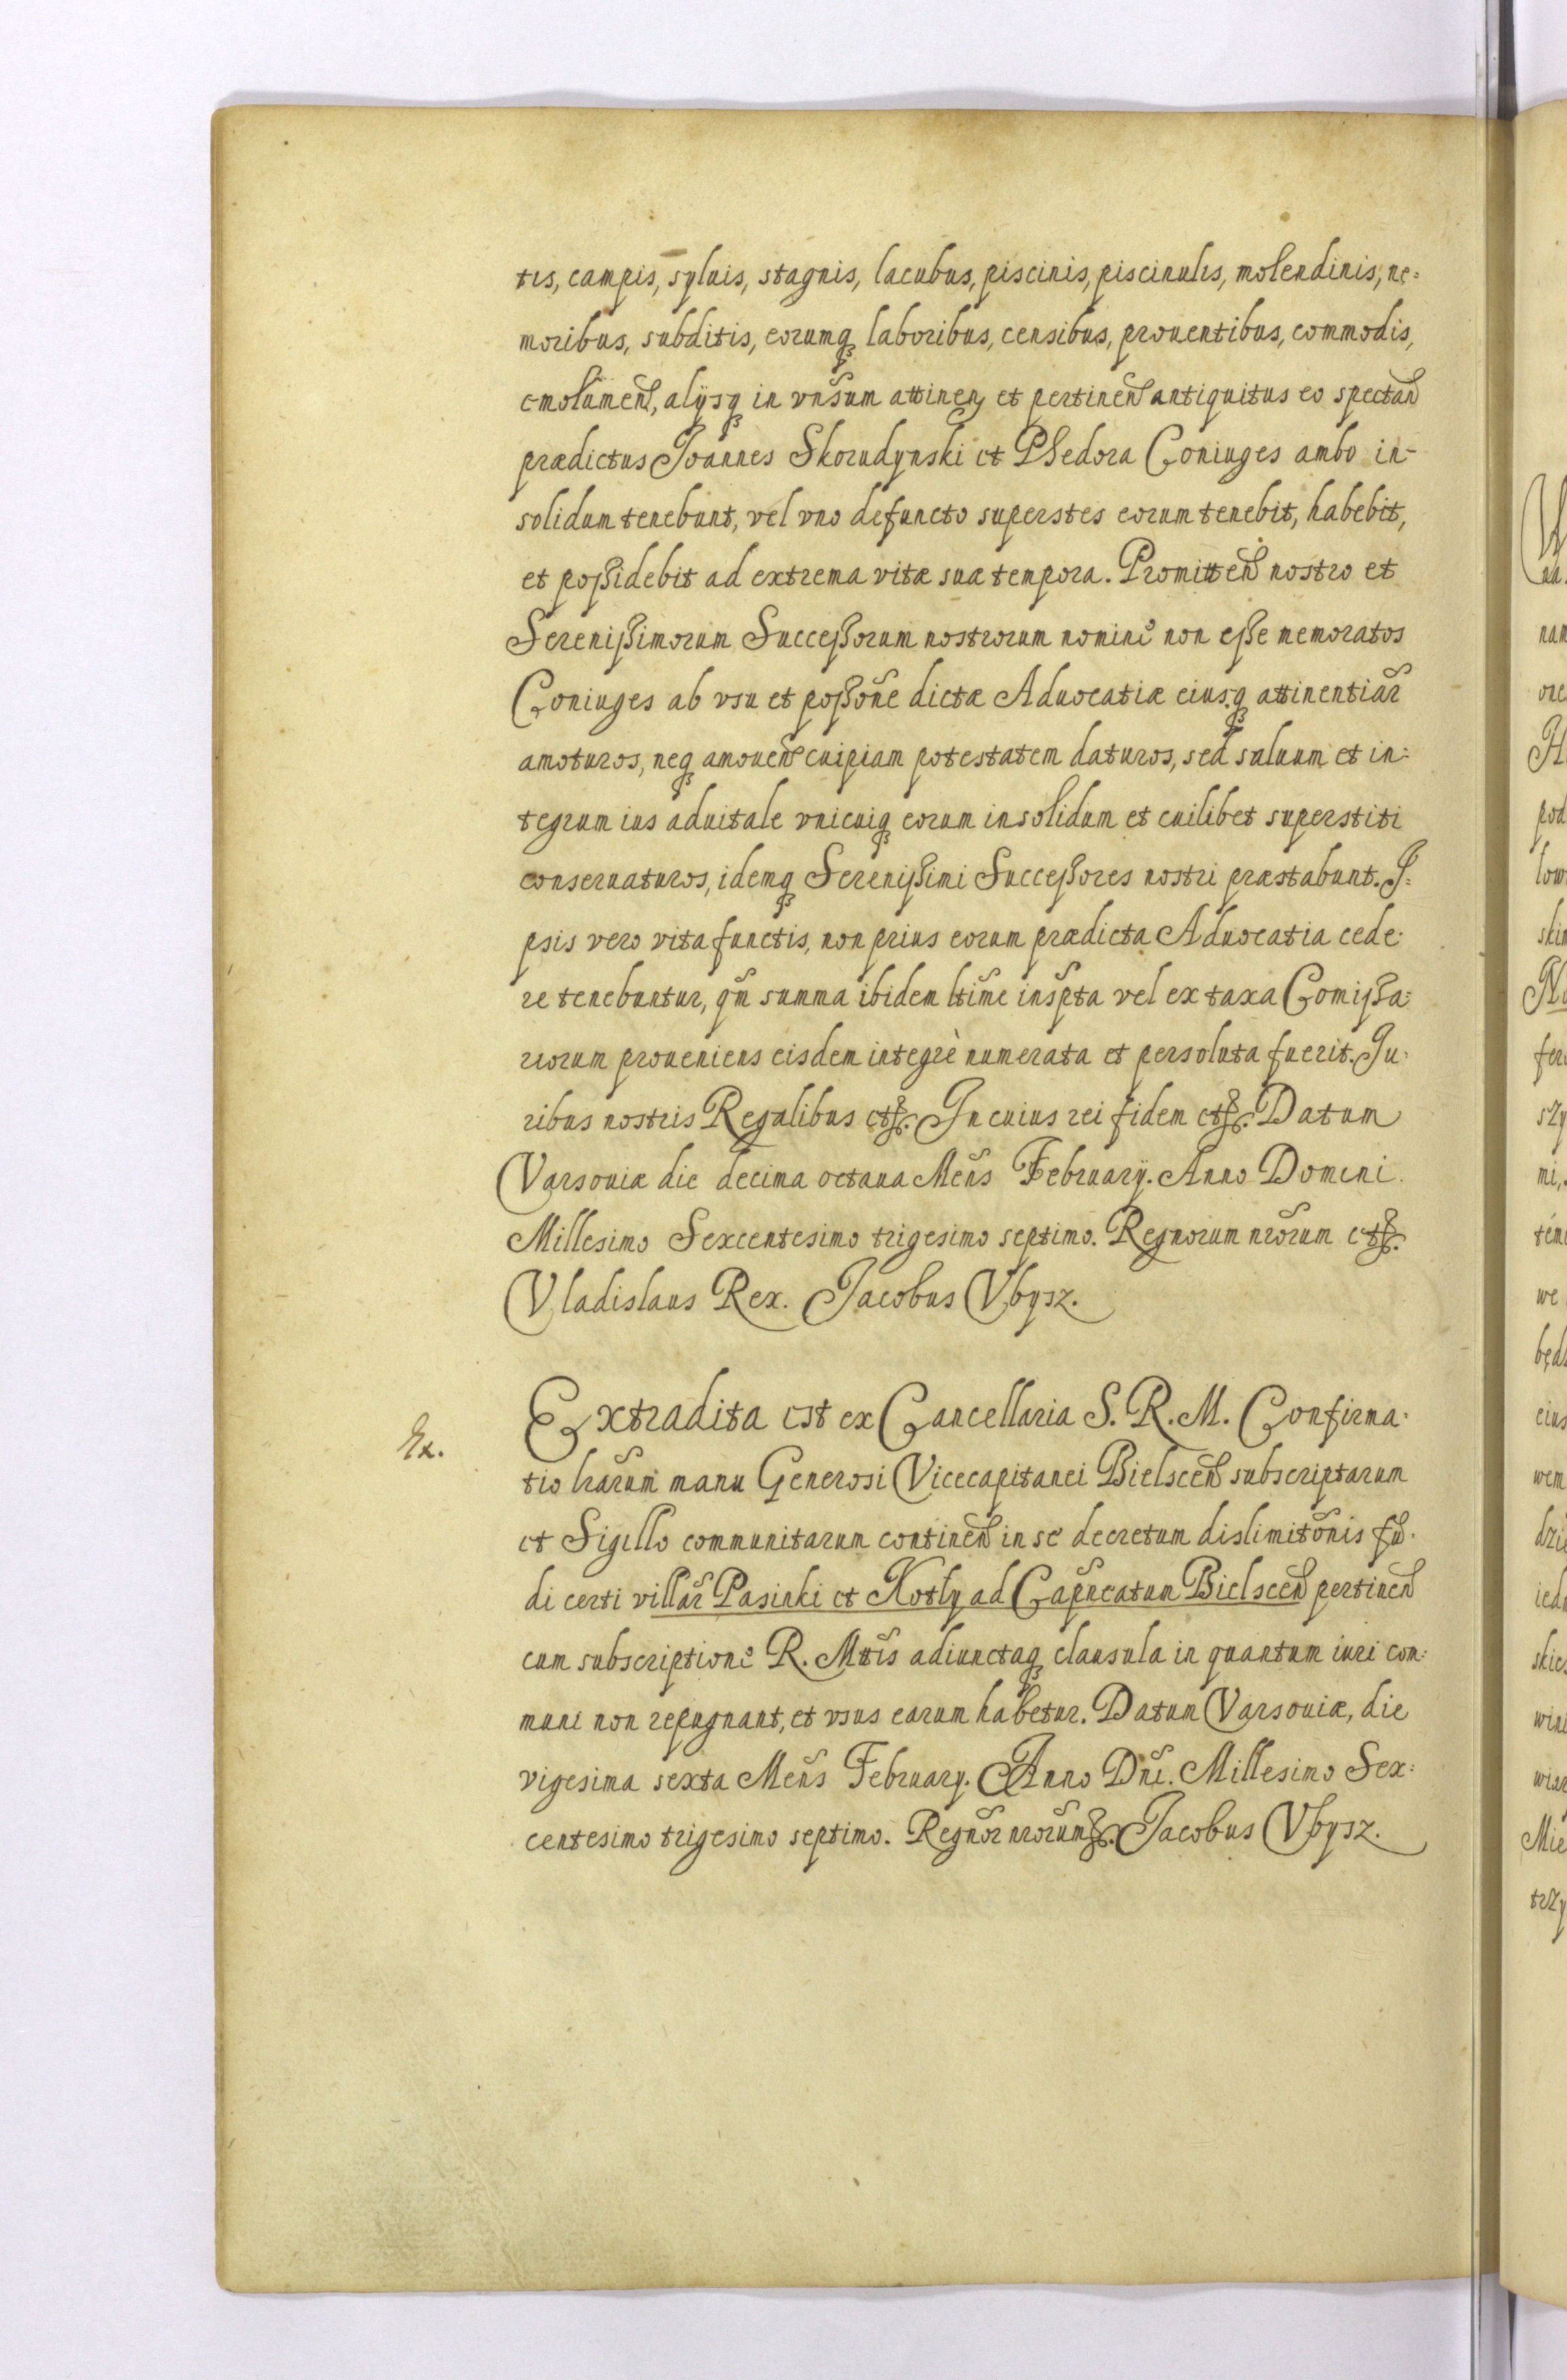 tis, campis, syluis, stagnis, lacubus, piscinis, piscinulis, molendinis, ne=
moribus, subditis, eorumq laboribus, censibus, prouentibus, commodis,
emolumen, alÿsq in vnsum attinen et pertinen antiquitus eo spectan
prædictus Joannes Skorudynski et Phedora Coniuges ambo in-
solidum tenebunt, vel vno defuncto superstes eorum tenebit, habebit,
et poßidebit ad extrema vitæ suæ tempora. Promitten nostro et
Serenißimorum Succeßorum nostrorum nomine non eße memoratos
Coniuges ab vsu et poßone dictæ Aduocatiæ eiusq attinentiar
amoturos, neq amouen cuipiam potestatem daturos, sed saluum et in=
tegrum ius aduitale vnicuiq eorum insolidum et cuilibet superstiti
conseruaturos, idemq Serenißimi Succeßores nostri præstabunt. I=
psis vero vita functis, non prius eorum prædicta Aduocatia cede=
re tenebuntur, qm summa ibidem ltime inspta vel ex taxa Comißa=
riorum proueniens eisdem integrè numerata et persoluta fuerit. Iu=
ribus nostris Regalibus etc. In cuius rei fidem etc. Datum
Varsouiæ die decima octaua Mens Februarÿ. Anno Domini
Millesimo Sexcentesimo trigesimo septimo. Regnorum nrorum etc.
Vladislaus Rex. Jacobus Vbysz.
Ex.
Extradita est ex Cancellaria S. R. M. Confirma=
tio lrarum manu Generosi Vicecapitanei Bielscen subscriptarum
et Sigillo communitarum continen in se decretum dislimitonis fu=
di certi villar Pasinki et Kotly ad Capneatum Bielscen pertinen
cum subscriptione R. Mttis adiunctaq clausula in quantum iuri com=
muni non repugnant, et vsus earum habetur. Datum Varsouiæ, die
vigesima sexta Mens February. Anno Dni. Millesimo Sex=
centesimo trigesimo septimo. Regnor nrorum etc. Jacobus Vbysz.